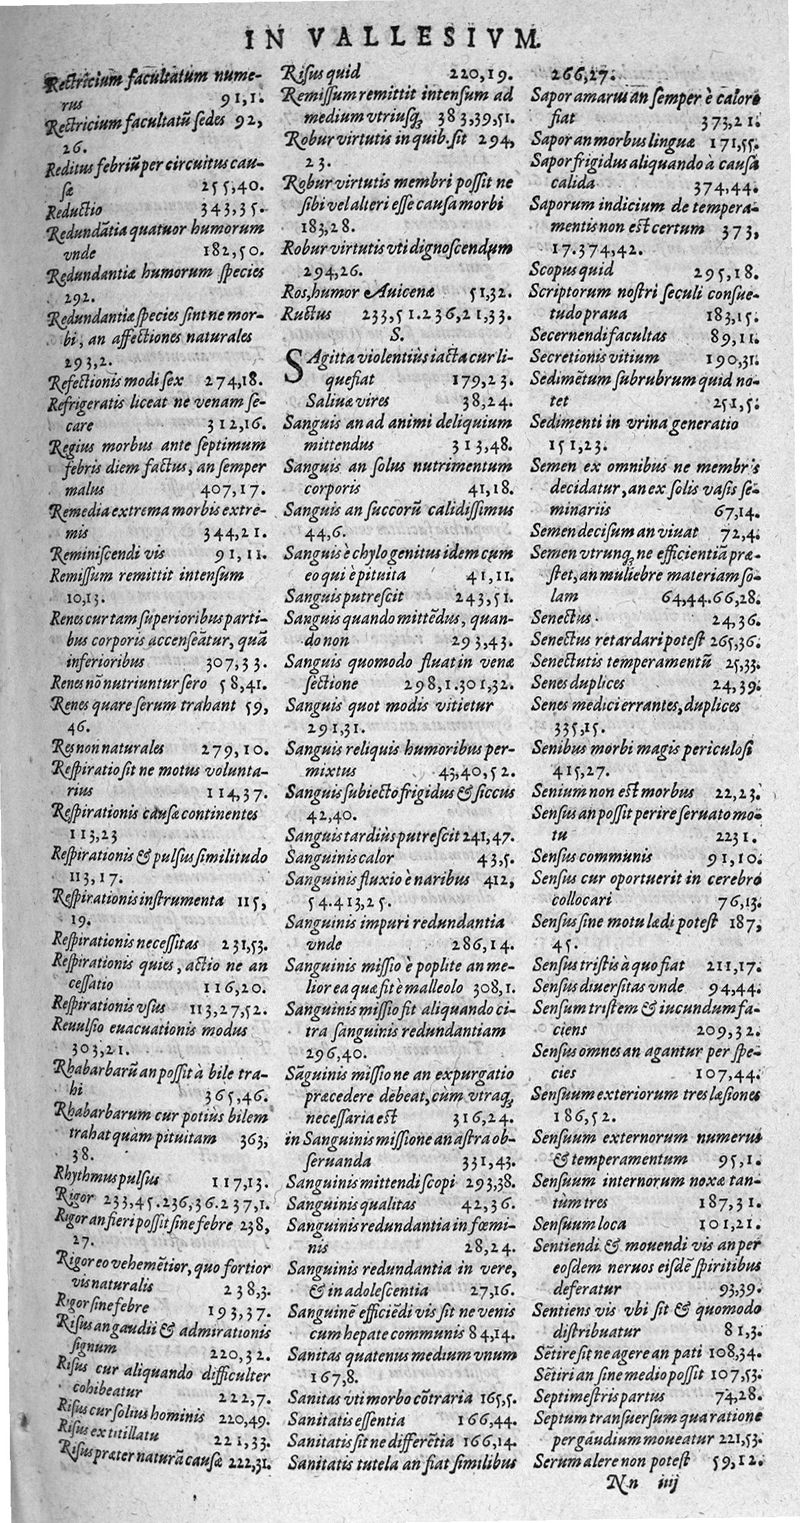 IN VALLESIVM.
Rectricium facultatum nume-
rus 91,1.
Rectricium facultatũ sedes 92,
26.
Reditus febriũ per circuitus cau-
sæ 255,40.
Reductio 343,35.
Redundãtia quatuor humorum
vnde 182,50.
Redundantiæ humorum species
292.
Redundantiæ species sint ne mor-
bi, an affectiones naturales
293,2.
Refectionis modi sex 274,18.
Refrigeratis liceat ne venam se-
care 312,16.
Regius morbus ante septimum
febris diem factus, an semper
malus 407,17.
Remedia extrema morbis extre-
mis 344,21.
Reminiscendi vis 91,11.
Remissum remittit intensum
10,13.
Renes cur tam superioribus parti-
bus corporis accenseãtur, quã
inferioribus 307,33.
Renes nõ nutriuntur sero 58,41.
Renes quare serum trahant 59,
46.
Res non naturales 279,10.
Respiratio sit ne motus volunta-
rius 114,37.
Respirationis causæ continentes
113,23
Respirationis & pulsus similitudo
113,17.
Respirationis instrumenta 115,
19.
Respirationis necessitas 231,53.
Respirationis quies, actio ne an
cessatio 116,20.
Respirationis vsus 113,27,52.
Reuulsio euacuationis modus
303,21.
Rhabarbarũ an possit à bile tra-
hi 365,46.
Rhabarbarum cur potiùs bilem
trahat quam pituitam 363,
38.
Rhythmus pulsus 117,13.
Rigor 233,45.236,36.237,1.
Rigor an fieri possit sine febre 238,
27.
Rigor eo vehemẽtior, quo fortior
vis naturalis 238,3.
Rigor sine febre 193,37.
Risus an gaudii & admirationis
signum 220,32.
Risus cur aliquando difficulter
cohibeatur 222,7.
Risus cur solius hominis 220,49.
Risus ex titillatu 221,33.
Risus præter naturã causæ 222,31.
Risus quid 220,19.
Remissum remittit intensum ad
medium vtriusq; 383,39,51.
Robur virtutis in quib. sit 294,
23.
Robur virtutis membri possit ne
sibi vel alteri esse causa morbi
183,28.
Robur virtutis vti dignoscendum
294,26.
Ros, humor Auicenæ 51,32.
Ructus 233,51.236,21,33.
S.
SAgitta violentiùs iacta cur li-
quefiat 179,23.
Saliuæ vires 38,24.
Sanguis an ad animi deliquium
mittendus 313,48.
Sanguis an solus nutrimentum
corporis 41,18.
Sanguis an succorũ calidissimus
44,6.
Sanguis è chylo genitus idem cum
eo qui è pituita 41,11.
Sanguis putrescit 243,51.
Sanguis quando mittẽdus, quan-
do non 293,43.
Sanguis quomodo fluat in venæ
sectione 298,1.301,32.
Sanguis quot modis vitietur
291,31.
Sanguis reliquis humoribus per-
mixtus 43,40,52.
Sanguis subiecto frigidus & siccus
42,40.
Sanguis tardiùs putrescit 241,47.
Sanguinis calor 43,5.
Sanguinis fluxio è naribus 412,
54.413,25.
Sanguinis impuri redundantia
vnde 286,14.
Sanguinis missio è poplite an me-
lior ea quæ fit è malleolo 308,1.
Sanguinis missio fit aliquando ci-
tra sanguinis redundantiam
296,40.
Sãguinis missione an expurgatio
præcedere debeat, cùm vtraq;
necessaria est 316,24.
in Sanguinis missione an astra ob-
seruanda 331,43.
Sanguinis mittendi scopi 293,38.
Sanguinis qualitas 42,36.
Sanguinis redundantia in fœmi-
nis 28,24.
Sanguinis redundantia in vere,
& in adolescentia 27,16.
Sanguinẽ efficiẽdi vis sit ne venis
cum hepate communis 84,14.
Sanitas quatenus medium vnum
167,8.
Sanitas vti morbo cõtraria 165,5.
Sanitatis essentia 166,44.
Sanitatis sit ne differẽtia 166,14.
Sanitatis tutela an fiat similibus
266,27.
Sapor amarus an semper è calore
fiat 373,21.
Sapor an morbus linguæ 171,55.
Sapor frigidus aliquando à causa
calida 374,44.
Saporum indicium de tempera-
mentis non est certum 373,
17.374,42.
Scopus quid 295,18.
Scriptorum nostri seculi consue-
tudo praua 183,15.
Secernendi facultas 89,11.
Secretionis vitium 190,31.
Sedimẽtum subrubrum quid no-
tet 251,5.
Sedimenti in vrina generatio
151,23.
Semen ex omnibus ne membris
decidatur, an ex solis vasis se-
minariis 67,14.
Semen decisum an viuat 72,4.
Semen vtrunq; ne efficientiã præ-
stet, an muliebre materiam so-
lam 64,44.66,28.
Senectus 24,36.
Senectus retardari potest 265,36.
Senectutis temperamentũ 25,33.
Senes duplices 24,39.
Senes medici errantes, duplices
335,15.
Senibus morbi magis periculosi
415,27.
Senium non est morbus 22,23.
Sensus an possit perire seruato mo-
tu 2231.
Sensus communis 91,10.
Sensus cur oportuerit in cerebro
collocari 76,13.
Sensus sine motu lædi potest 187,
45.
Sensus tristis à quo fiat 211,17.
Sensus diuersitas vnde 94,44.
Sensum tristem & iucundum fa-
ciens 209,32.
Sensus omnes an agantur per spe-
cies 107,44.
Sensuum exteriorum tres læsiones
186,52.
Sensuum externorum numerus
& temperamentum 95,1.
Sensuum internorum noxæ tan-
tùm tres 187,31.
Sensuum loca 101,21.
Sentiendi & mouendi vis an per
eosdem neruos eisdẽ spiritibus
deferatur 93,39.
Sentiens vis vbi sit & quomodo
distribuatur 81,3.
Sẽtire sit ne agere an pati 108,34.
Sẽtiri an sine medio possit 107,53.
Septimestris partus 74,28.
Septum transuersum qua ratione
per gaudium moueatur 221,53.
Serum alere non potest 59,12.
Nn iiij